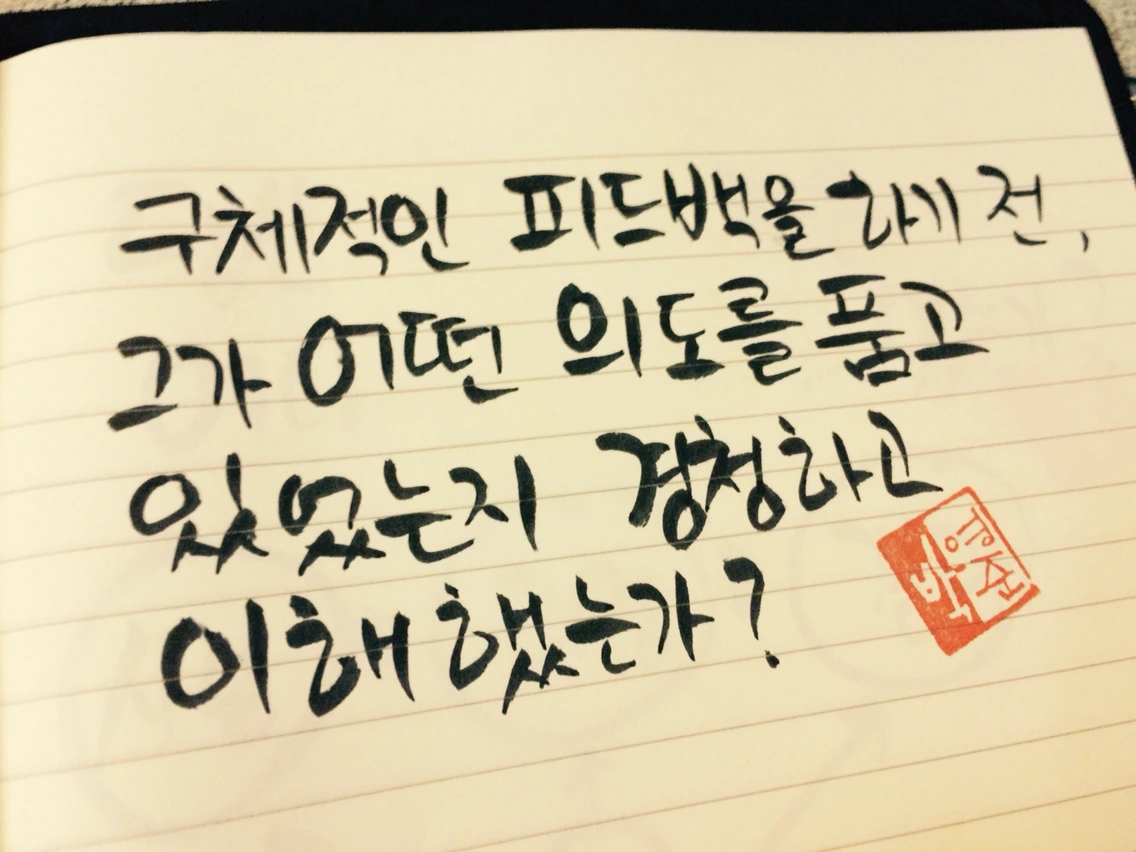 구체적인 피드백을 하기 전,
그가 어떤 의도를 품고
있었는지 경청하고
이해했는가?